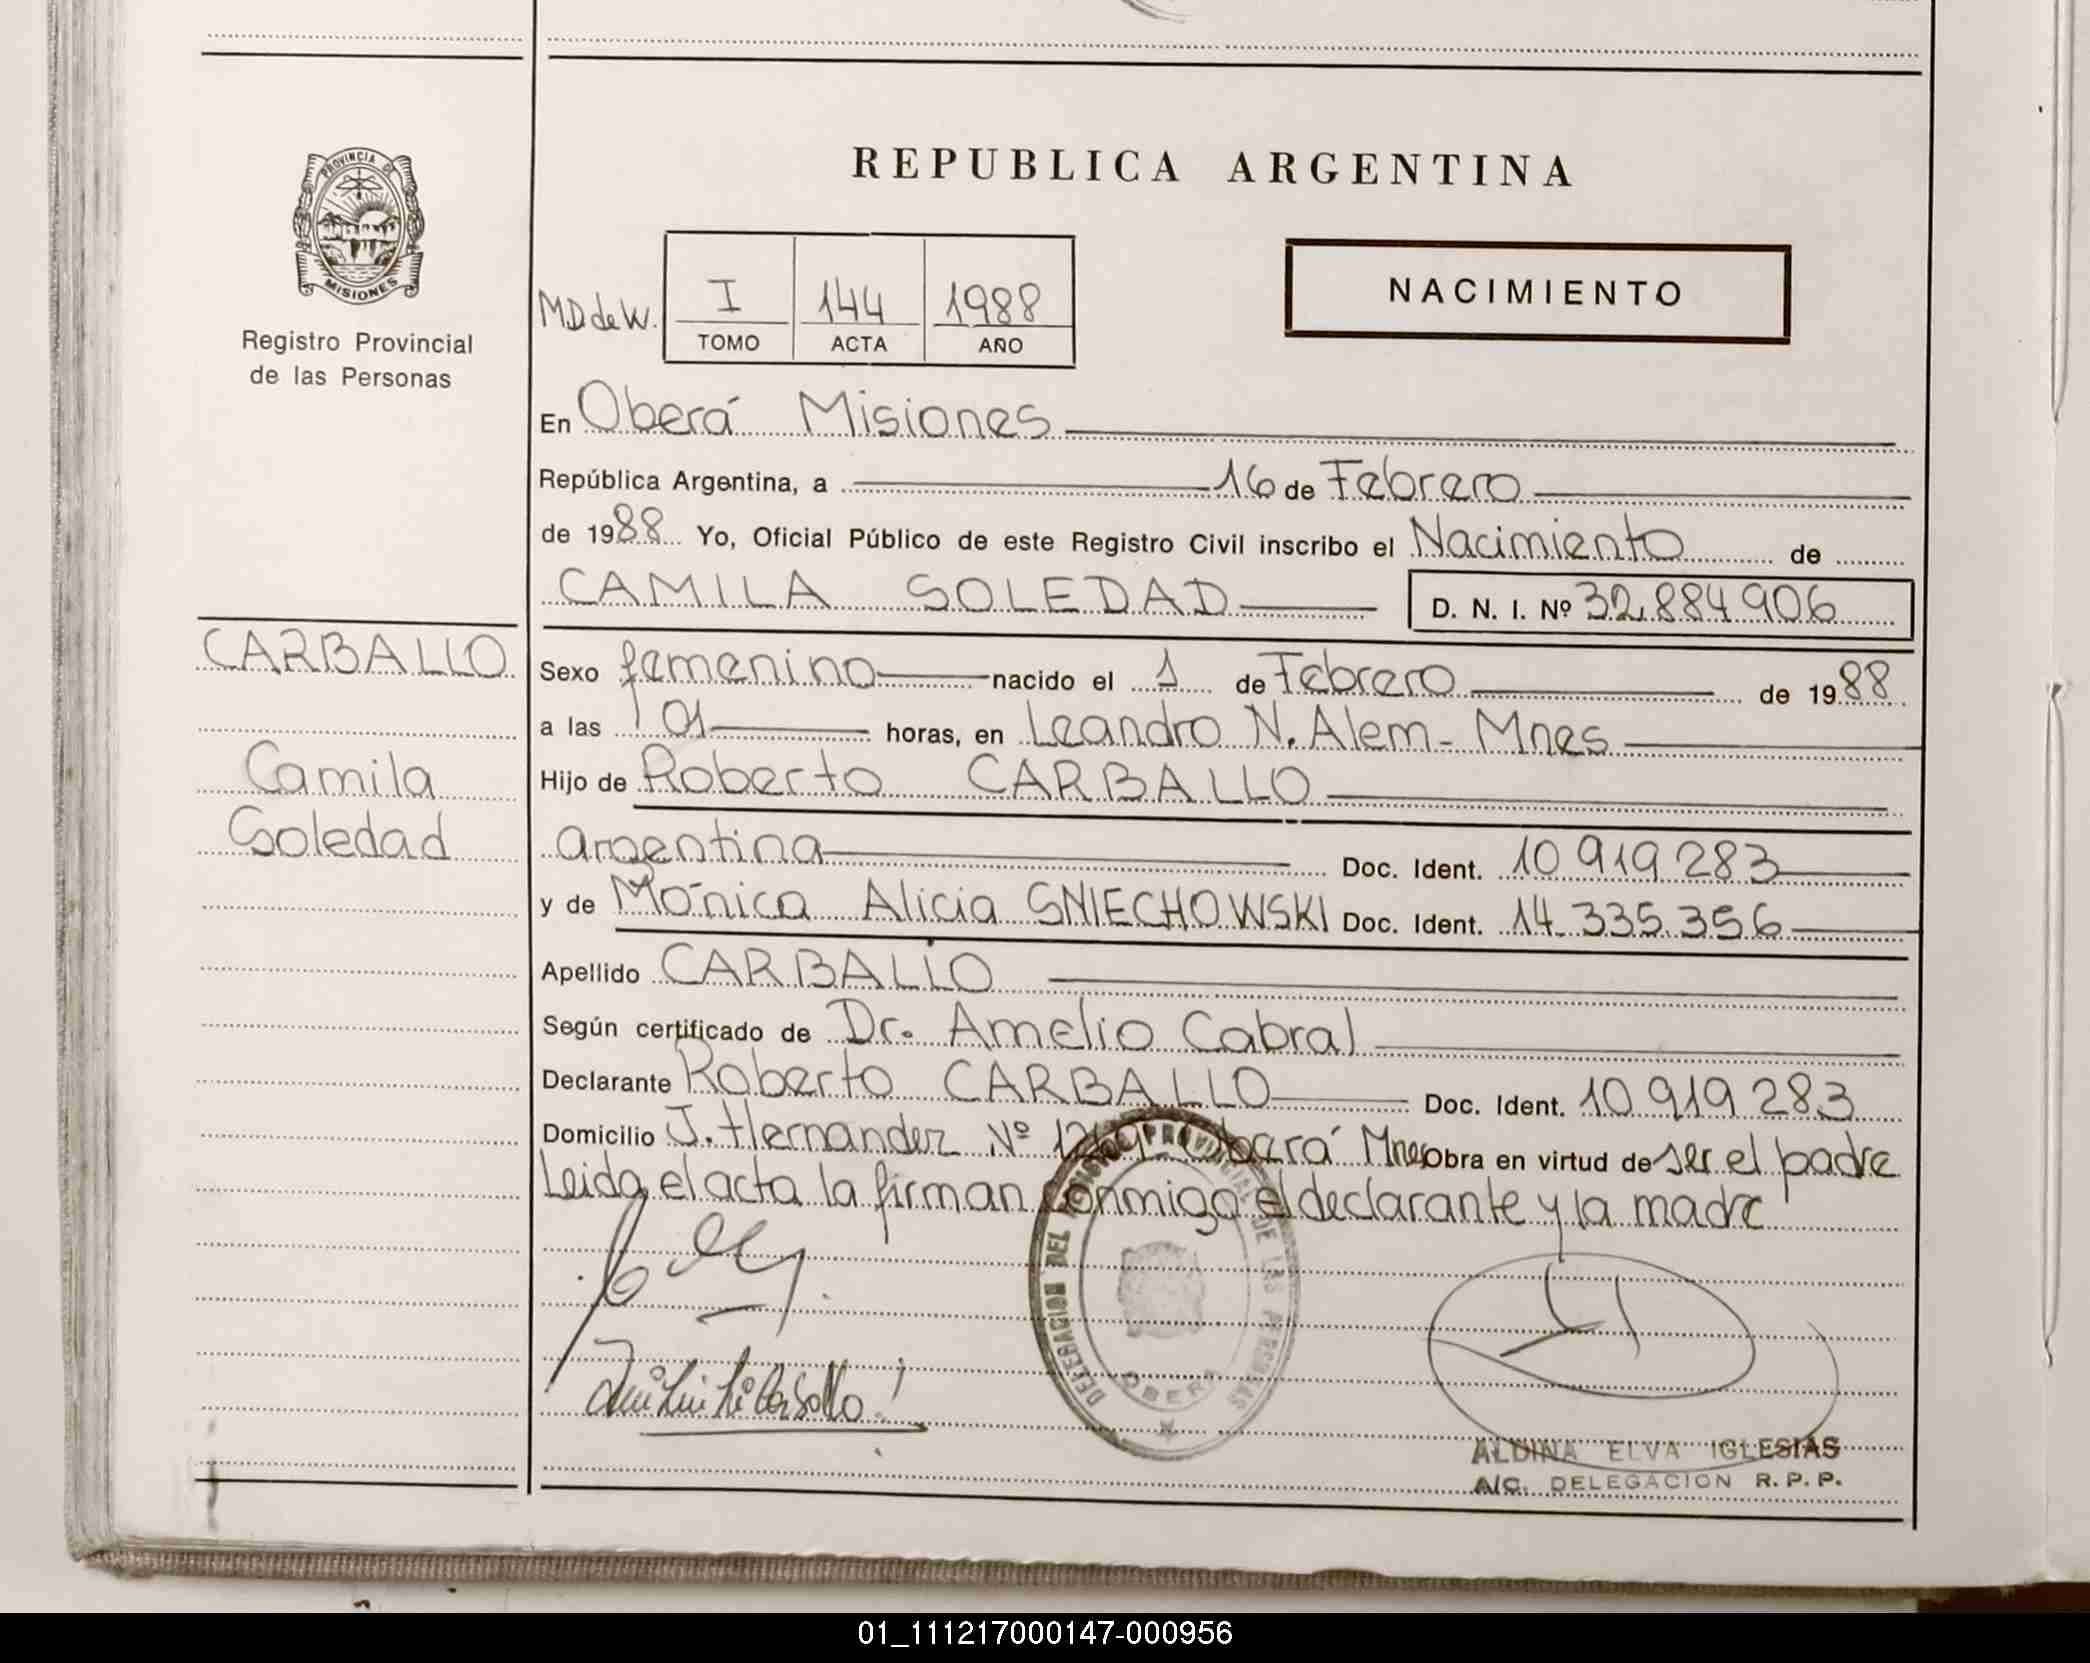 REPUBLICA ARGENTINA
PROVINCIA DE
MISIONES
Registro Provincial
de las Personas
M.D. de W.
I
144
1988
TOMO
ACTA
AÑO
NACIMIENTO
En Oberá Misiones
República Argentina, a 16 de Febrero
de 1988 Yo, Oficial Público de este Registro Civil inscribo el Nacimiento de
CAMILA SOLEDAD D. N. I. Nº 32.884.906
CARBALLO
Camila
Soledad
Sexo femenino nacido el 1 de Febrero de 1988
a las 01 horas, en Leandro N. Alem - Mnes
Hijo de Roberto CARBALLO
argentina Doc. Ident. 10 919 283
y de Mónica Alicia SNIECHOWSKI Doc. Ident. 14.335.356
Apellido CARBALLO
Según certificado de Dr. Amelio Cabral
Declarante Roberto CARBALLO Doc. Ident. 10 919 283
Domicilio J. Hernandez Nº Oberá Mnes Obra en virtud de ser el padre
Leida el acta la firman conmigo el declarante y la madre
DELEGACION DEL REGISTRO PROVINCIAL DE LAS PERSONAS
OBERA
ALDINA ELVA IGLESIAS
A/C. DELEGACION R. P. P.
01_111217000147-000956